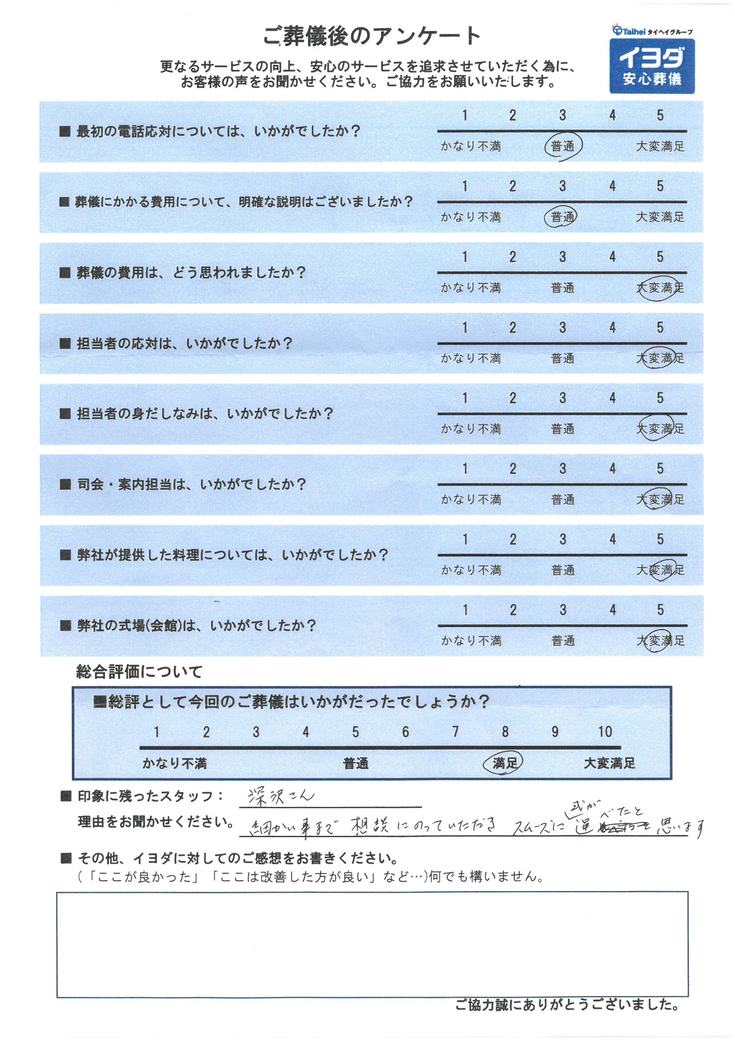 ご葬儀後のアンケート
Taihei タイヘイグループ
イヨダ
安心葬儀
更なるサービスの向上、安心のサービスを追求させていただく為に、
お客様の声をお聞かせください。ご協力をお願いいたします。
1 2 3 4 5
■ 最初の電話応対については、いかがでしたか？
かなり不満 普通 大変満足
1 2 3 4 5
■ 葬儀にかかる費用について、明確な説明はございましたか？
かなり不満 普通 大変満足
1 2 3 4 5
■ 葬儀の費用は、どう思われましたか？
かなり不満 普通 大変満足
1 2 3 4 5
■ 担当者の応対は、いかがでしたか？
かなり不満 普通 大変満足
1 2 3 4 5
■ 担当者の身だしなみは、いかがでしたか？
かなり不満 普通 大変満足
1 2 3 4 5
■ 司会・案内担当は、いかがでしたか？
かなり不満 普通 大変満足
1 2 3 4 5
■ 弊社が提供した料理については、いかがでしたか？
かなり不満 普通 大変満足
1 2 3 4 5
■ 弊社の式場(会館)は、いかがでしたか？
かなり不満 普通 大変満足
総合評価について
■総評として今回のご葬儀はいかがだったでしょうか？
1 2 3 4 5 6 7 8 9 10
かなり不満 普通 満足 大変満足
■ 印象に残ったスタッフ： 深沢さん
理由をお聞かせください。 細かい事まで 相談にのっていただき スムーズに 式が 運べたと 思います
■ その他、イヨダに対してのご感想をお書きください。
(「ここが良かった」「ここは改善した方が良い」など…)何でも構いません。
ご協力誠にありがとうございました。